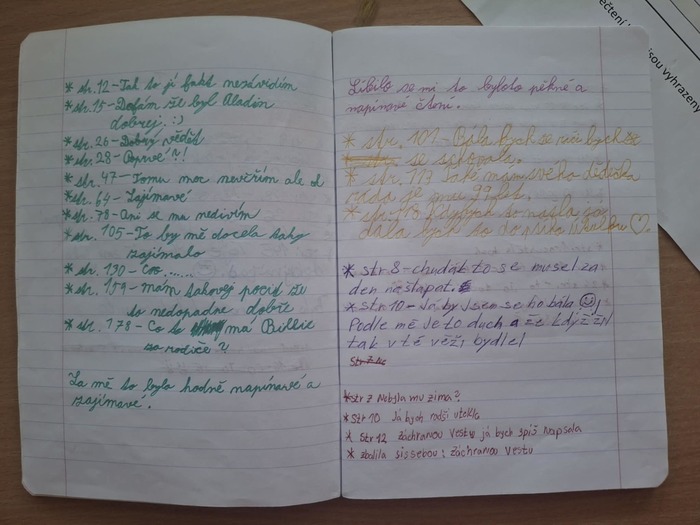 * str. 12 - Tak to jí fakt nezávidím
* str. 15 - Doufám že byl Aladin
dobrej. :)
* str. 26 - Dobrý vědět
* str. 28 - Poprvé?!
* str. 47 - Tomu moc nevěřím ale ok
* str. 64 - Zajímavé
* str. 78 - Ani se mu nedivím
* str. 105 - To by mě docela taky
zajímalo
* str. 130 - Coo......
* str. 159 - mám takový pocit že
to nedopadne dobře
* str. 178 - Co to má Billie
za rodiče?!
Za mě to bylo hodně napínavé a
zajímavé.
Líbilo se mi to bylo to pěkné a
napínavé čtení.
* str. 101 - Bála bych se
se schovala.
* str. 113 Také mám svého dědečka
ráda je mu 99 let.
* str. kdybych to našla já
dala bych to do ♡.
* str 8 - chudák to se musel za
den našlapat.
* str. 10 - Já by jsem se ho bála ☺
Podle mě je to duch a že když žil
tak v té věži bydlel
* str 7 Nebyla mu zima?
* Str 10 Já bych radši utekla
* Str 12 záchranou vestu já bych spíš napsala
* zbalila sis sebou i záchranou vestu
čtení
jsou vyhrazeny